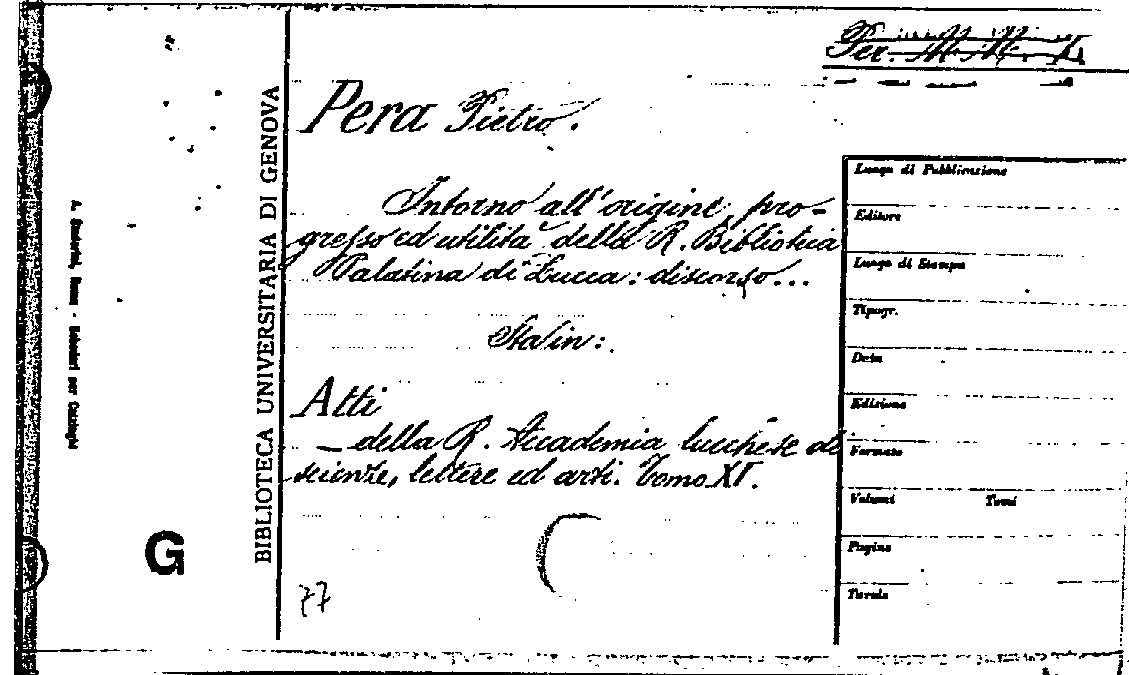 Pera Pietro.
Intorno all'origine, pro-
gresso ed utilità della R. Biblioteca
Palatina di Lucca: discorso...
Sta in:
Atti
— della R. Accademia lucchese di
scienze, lettere ed arti. Tomo XI.
77
BIBLIOTECA UNIVERSITARIA DI GENOVA
G
Luogo di Pubblicazione
Editore
Luogo di Stampa
Tipogr.
Data
Edizione
Formato
Volumi Tomi
Pagine
Tavole